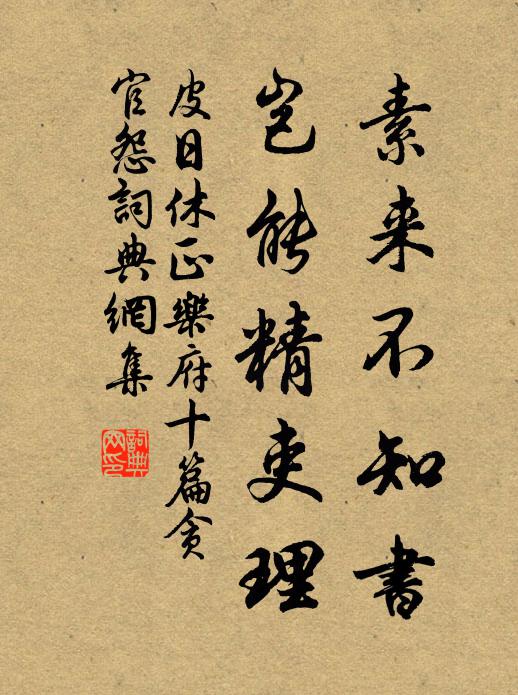 素来不知書
豈能精吏理
皮日休正樂府十篇貪
官怨詞典網集
詞典网印